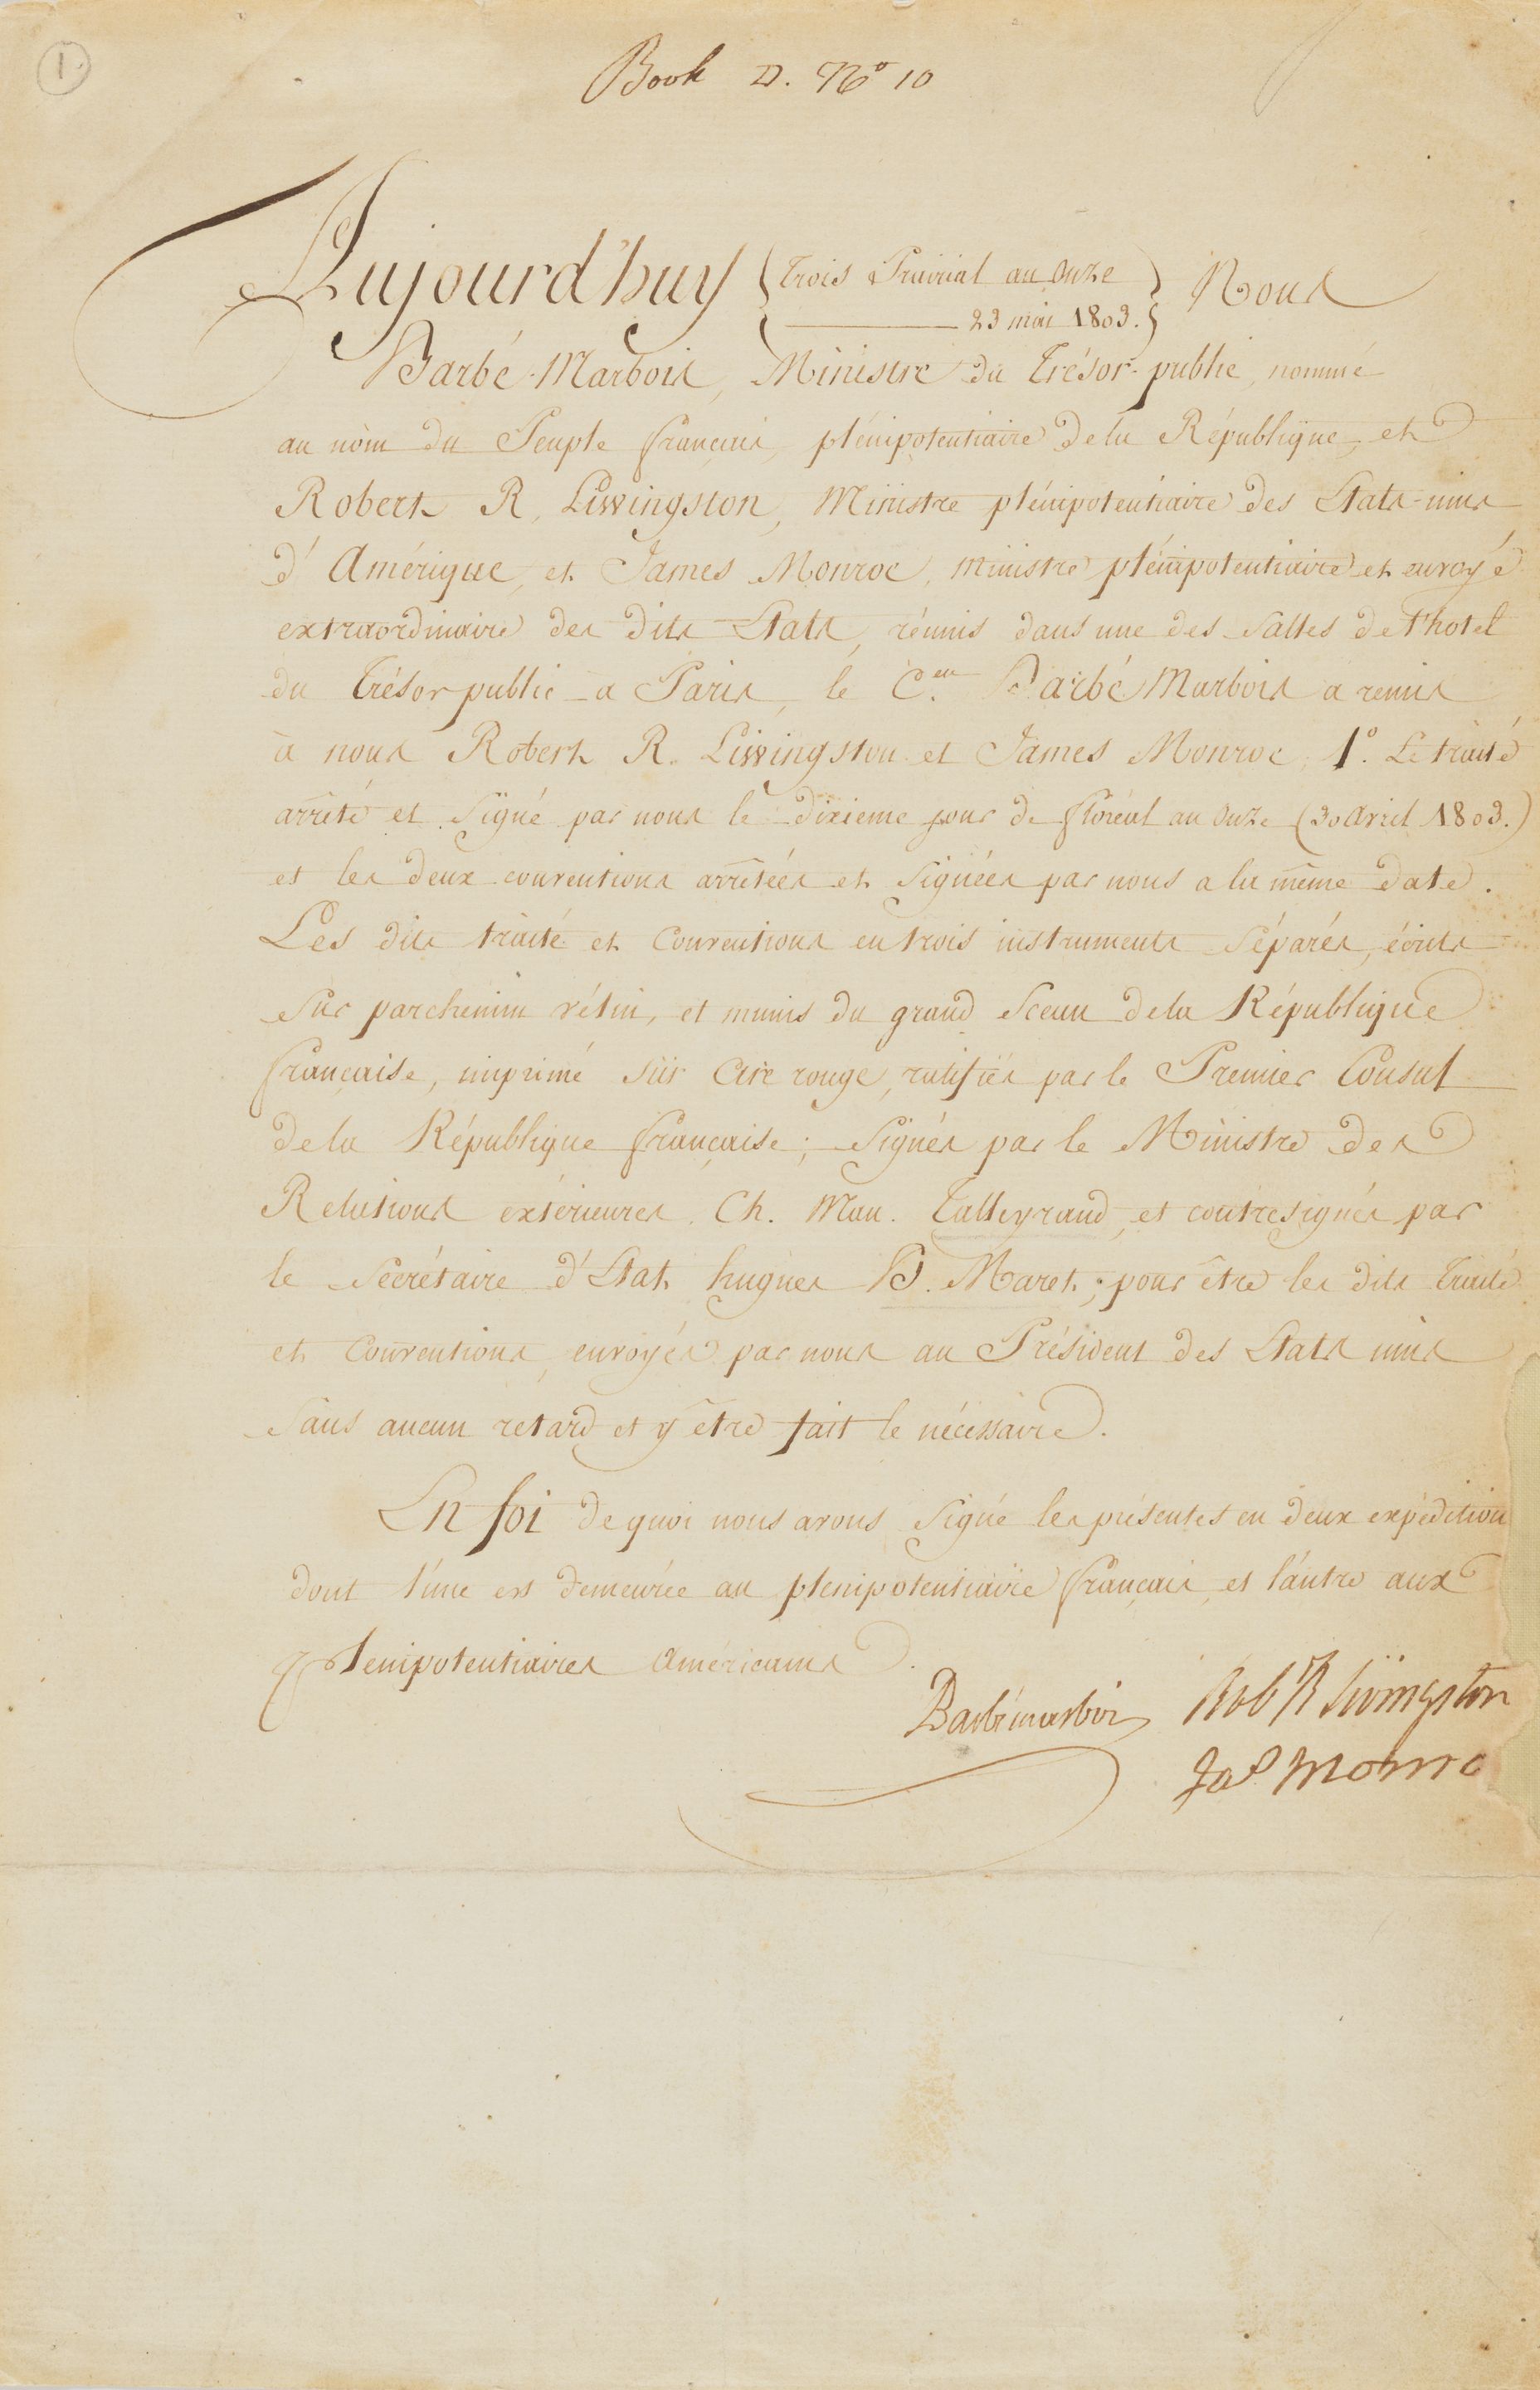 1.
Book D. No 10
Aujourd'huy { trois Prairial an onze } Nous
23 mai 1803.
Barbé-Marbois, Ministre du Trésor-public, nommé
au nom du Peuple français, plénipotentiaire de la République, et
Robert R. Livingston, Ministre plénipotentiaire des Etats-unis
d'Amérique, et James Monroe, ministre plénipotentiaire et envoyé
extraordinaire des dits Etats, réunis dans une des Salles de l'hotel
du Trésor public a Paris, le C.en Barbé Marbois a remis
à nous Robert R. Livingston et James Monroe, 1o. Le traité
arrêté et Signé par nous le dixieme jour de floréal an onze (30 avril 1803.)
et les deux conventions arrêtées et Signées par nous a la même date.
Les dits traité et Conventions en trois instruments Séparés, écrits
Sur parchemin vélin, et munis du grand Sceau de la République
française, imprimé Sur Cire rouge, ratifiés par le Premier Consul
de la République française; Signés par le Ministre des
Relations extérieures, Ch. Mau. Talleyrand, et contresignés par
le Secrétaire d'Etat hugues B. Maret; pour être les dits Traité
et Conventions, envoyés par nous au Président des Etats unis
Sans aucun retard et y être fait le nécessaire.
En foi de quoi nous avons Signé les présentes en deux expédition
dont l'une est demeurée au plenipotentiaire français, et l'autre aux
Plenipotentiaires américains.
Barbé marbois Robt R Livingston
Jas Monroe